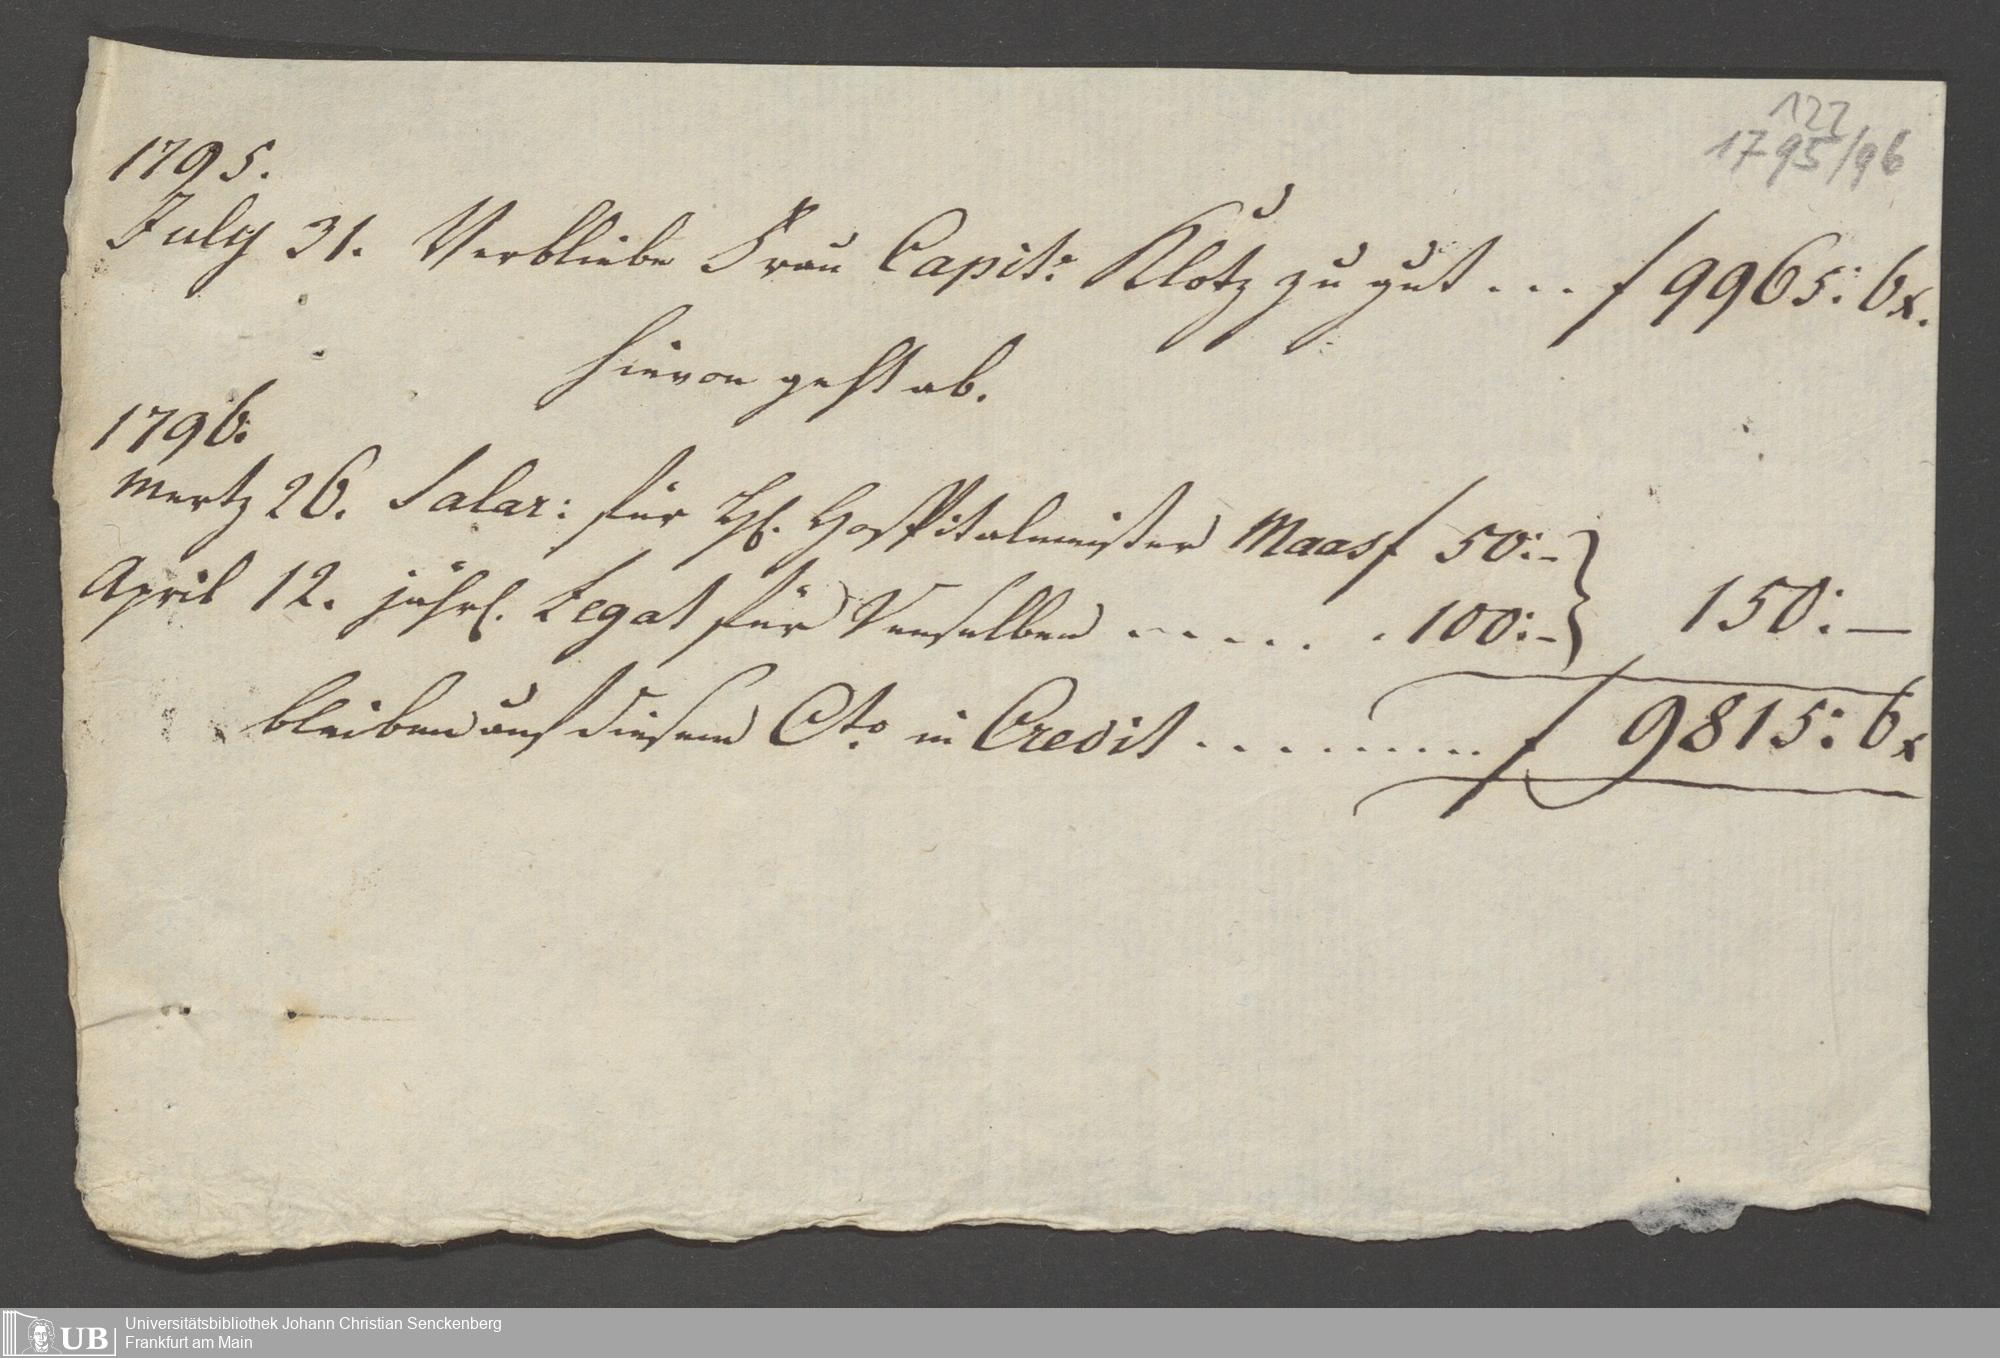 122
1795/96
1795.
July 31. Verbliebe Frau Capit: Klotz zu gut ... f 9965: 6x.
hievon geht ab.
1796:
Mertz 26. Salar: für H. Hospitalmeister Maas f 50:-
April 12. jährl. Legat für Denselben ....... 100:- } 150:—
bleiben auf diesem Cto in Credit ......... f 9815: 6x
UB
Universitätsbibliothek Johann Christian Senckenberg
Frankfurt am Main